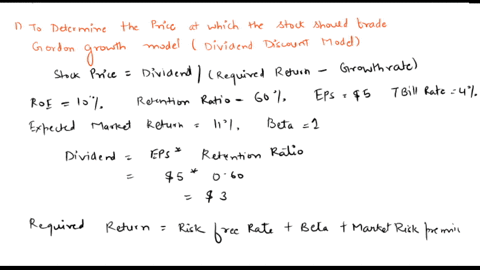 1) To Determine the Price at which the Stock should trade
Gordon growth model ( Dividend Discount Model)
Stock Price = Dividend / (Required Return - Growth rate)
ROE = 10%. Retention Ratio - 60%. EPS = $5 T Bill Rate = 4%
Expected Market Return = 11% Beta = 1
Dividend = EPS * Retention Ratio
= $5 * 0.60
= $3
Required Return = Risk free Rate + Beta + Market Risk premiu